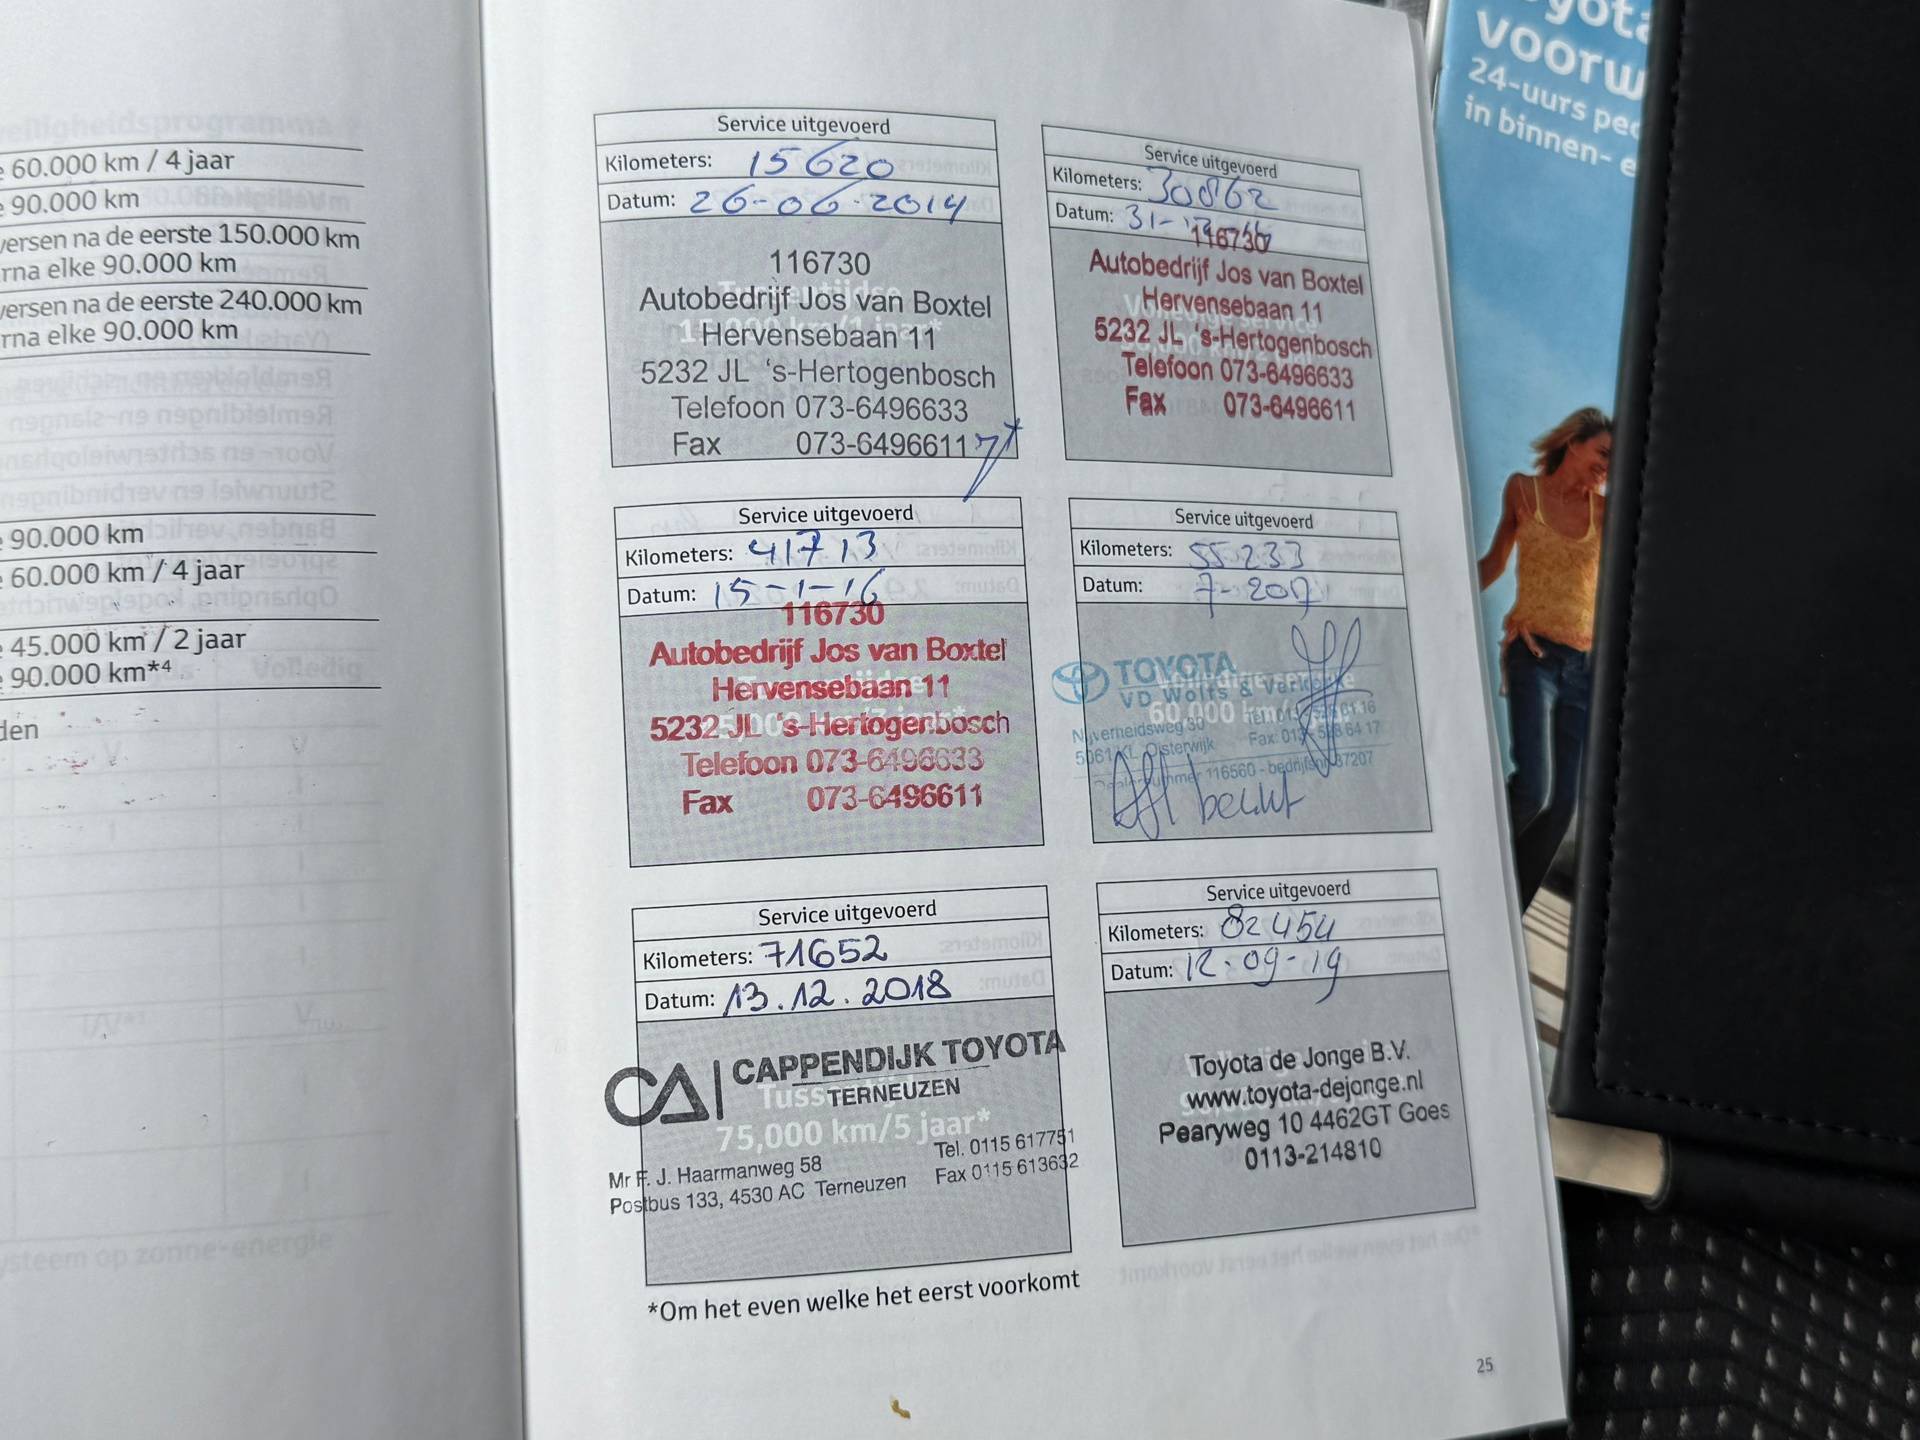 60.000 km / 4 jaar
90.000 km
versen na de eerste 150.000 km
rna elke 90.000 km
versen na de eerste 240.000 km
rna elke 90.000 km
90.000 km
60.000 km / 4 jaar
45.000 km / 2 jaar
90.000 km*4
den
Service uitgevoerd
Kilometers: 15620
Datum: 26-06-2014
116730
Autobedrijf Jos van Boxtel
Hervensebaan 11
5232 JL 's-Hertogenbosch
Telefoon 073-6496633
Fax 073-6496611
Service uitgevoerd
Kilometers: 30862
Datum: 31-
116730
Autobedrijf Jos van Boxtel
Hervensebaan 11
5232 JL 's-Hertogenbosch
Telefoon 073-6496633
Fax 073-6496611
Service uitgevoerd
Kilometers: 41713
Datum: 15-1-16
116730
Autobedrijf Jos van Boxtel
Hervensebaan 11
5232 JL 's-Hertogenbosch
Telefoon 073-6496633
Fax 073-6496611
Service uitgevoerd
Kilometers: 55233
Datum: 7-2017
TOYOTA
60.000 km
Nijverheidsweg 30
Oisterwijk
116560 - bedrijfsnr. 37207
Service uitgevoerd
Kilometers: 71652
Datum: 13.12.2018
CA CAPPENDIJK TOYOTA
TERNEUZEN
75,000 km/5 jaar*
Mr F. J. Haarmanweg 58 Tel. 0115 617751
Postbus 133, 4530 AC Terneuzen Fax 0115 613632
Service uitgevoerd
Kilometers: 82454
Datum: 12-09-19
Toyota de Jonge B.V.
www.toyota-dejonge.nl
Pearyweg 10 4462GT Goes
0113-214810
*Om het even welke het eerst voorkomt
25
voorw
24-uurs pec
in binnen- e